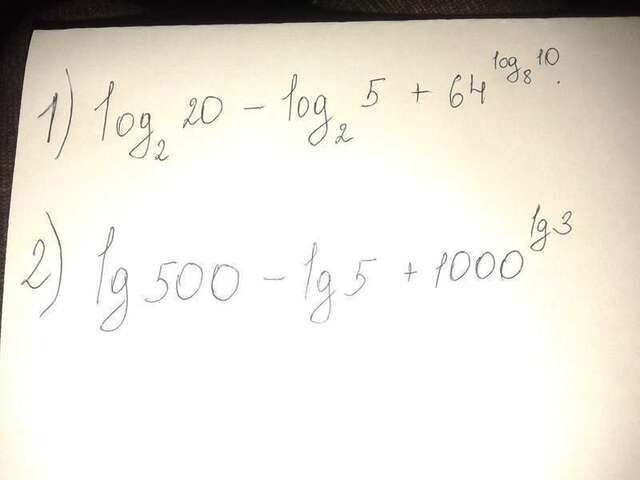 1) log₂ 20 - log₂ 5 + 64^log₈ 10.
2) lg 500 - lg 5 + 1000^lg 3